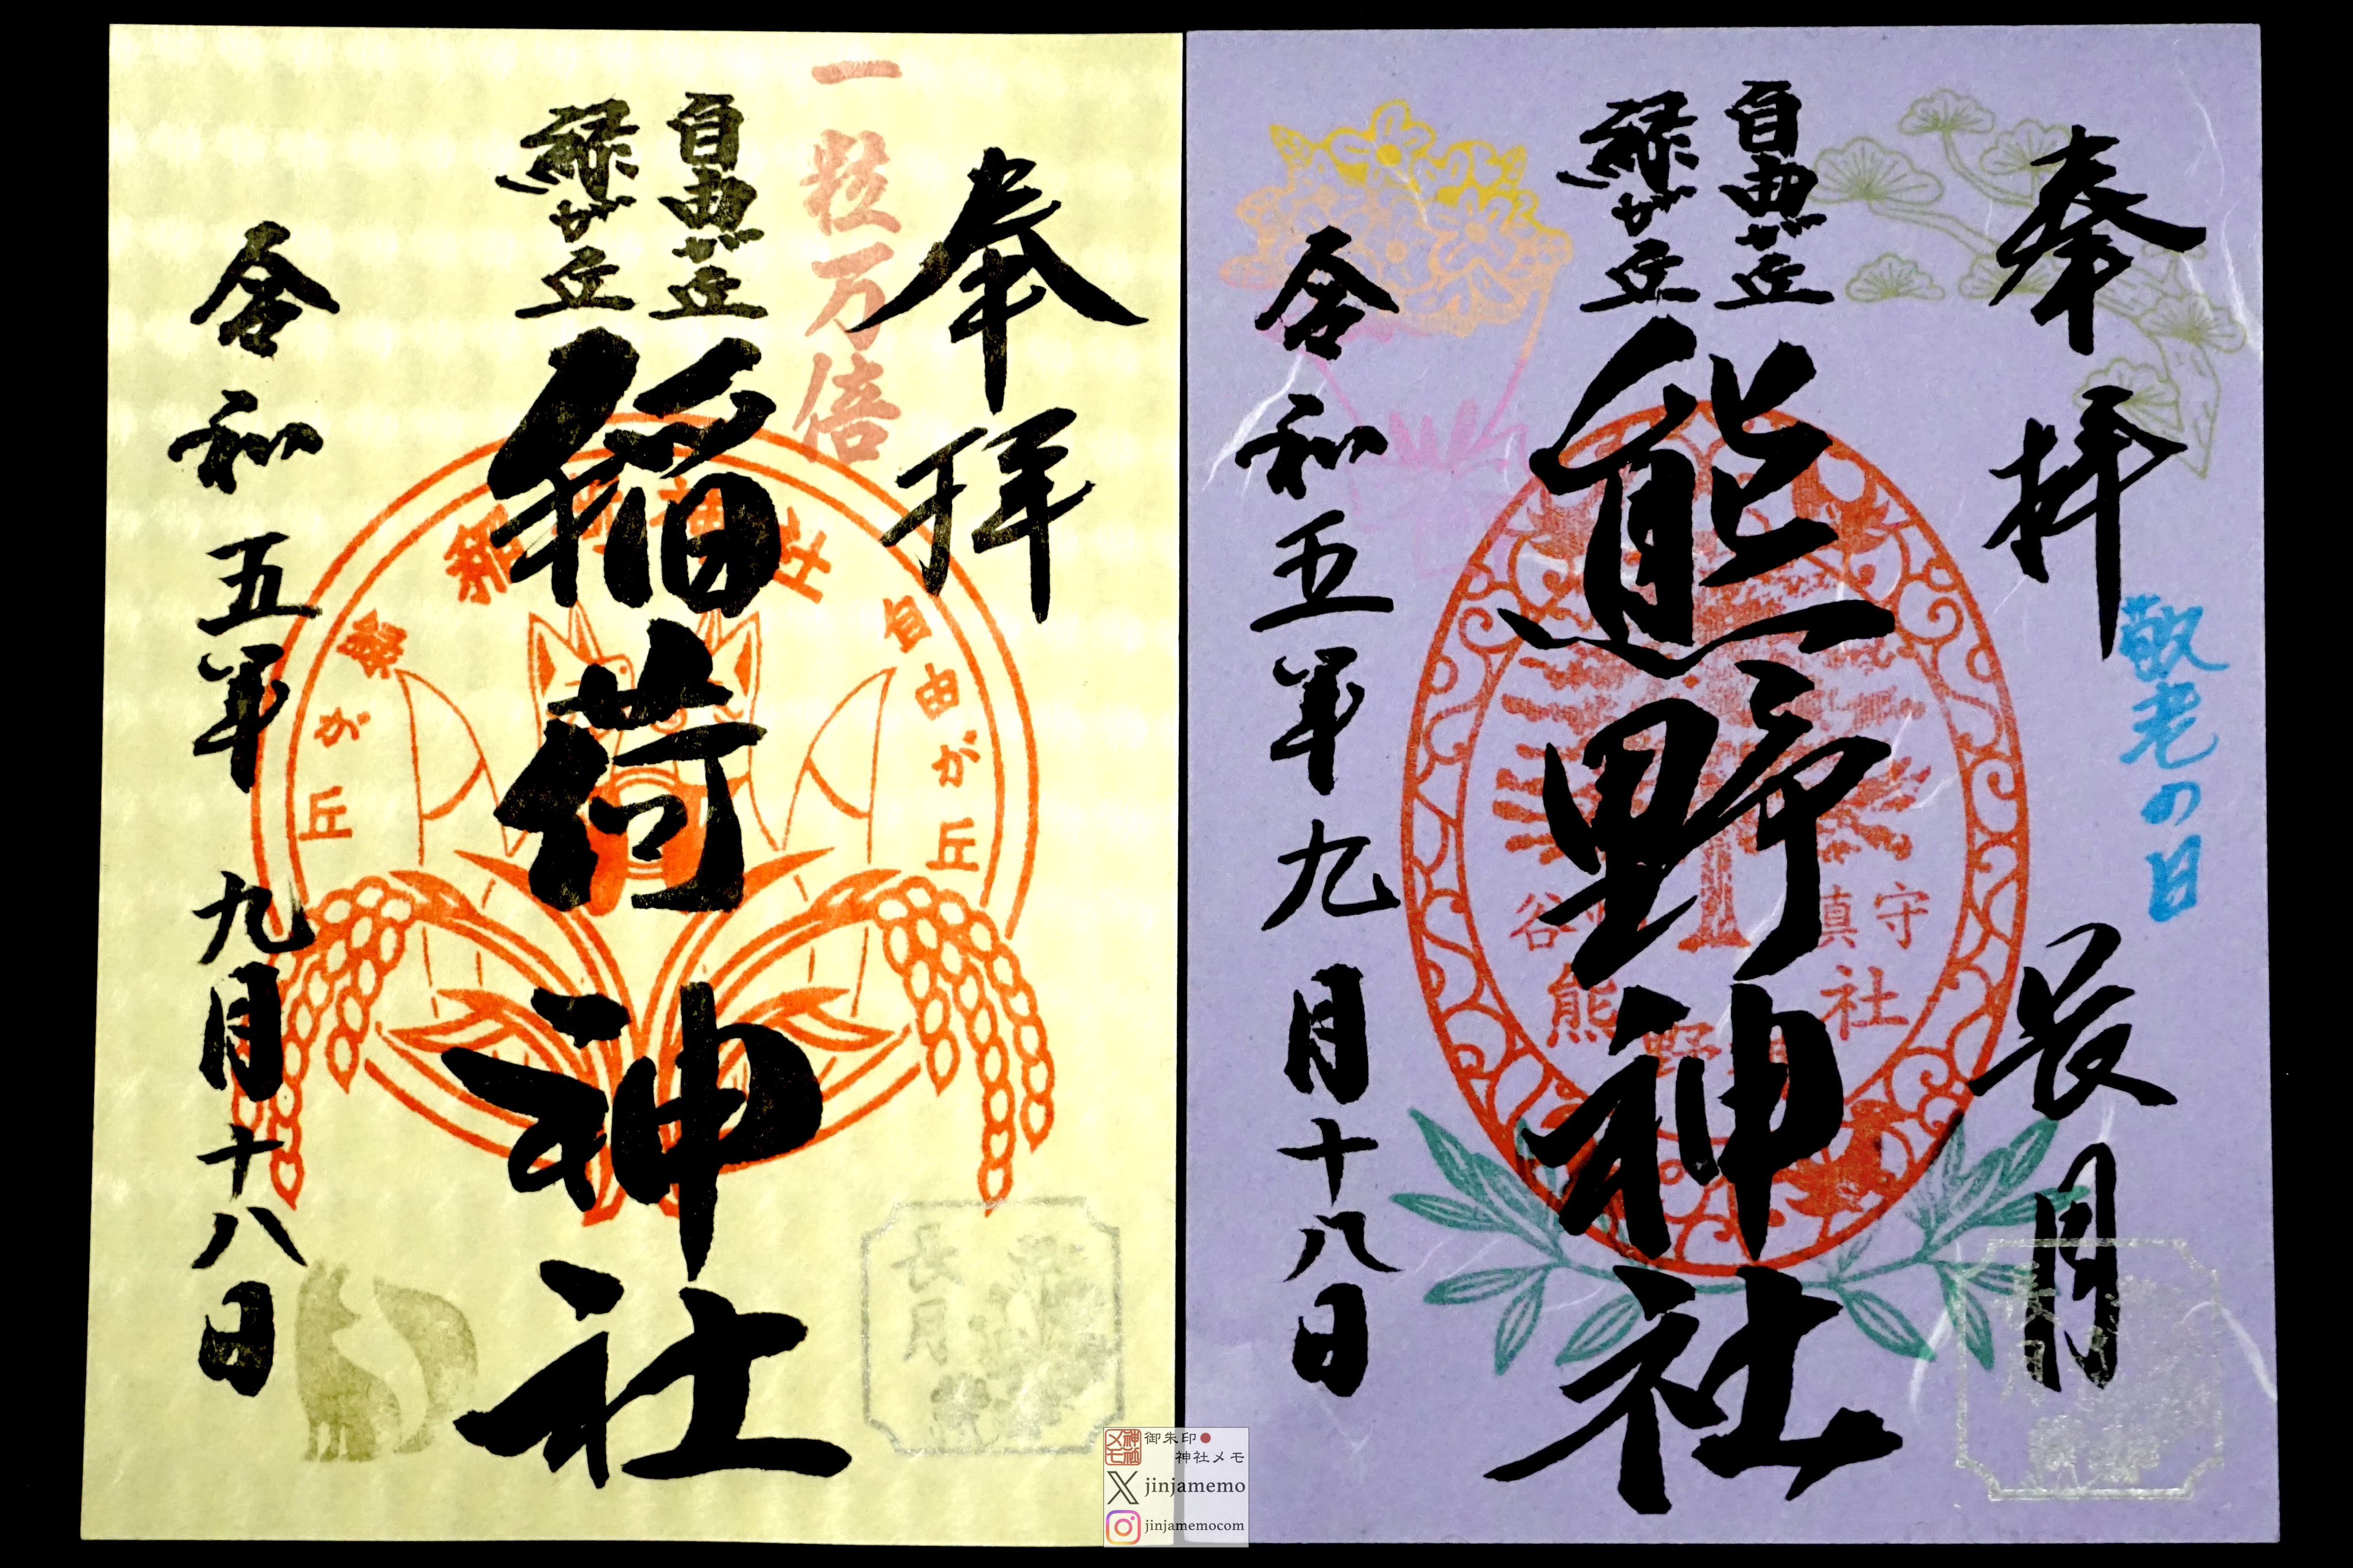 奉拝
一粒万倍
自由が丘
緑が丘
稲荷神社
令和五年九月十八日
稲荷神社
自由が丘
緑が丘
長月
奉拝
敬老の日
長月
自由が丘
緑が丘
熊野神社
令和五年九月十八日
谷
鎮守
熊野神社
御朱印●
神社メモ
神社メモ
X jinjamemo
jinjamemocom